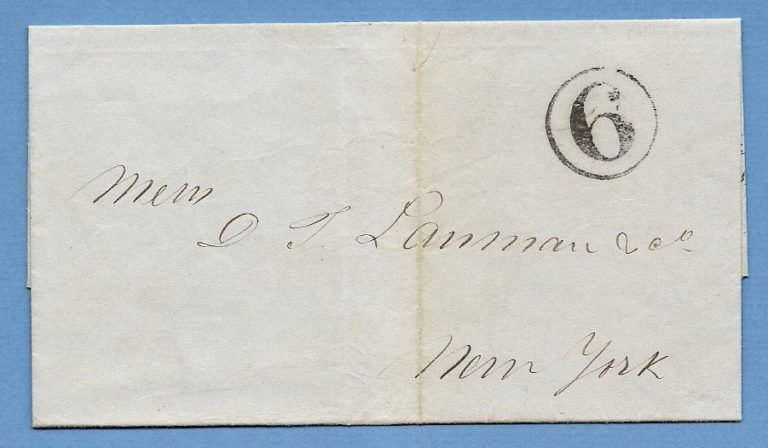 6
Mess
D T Lanman & Co
New York